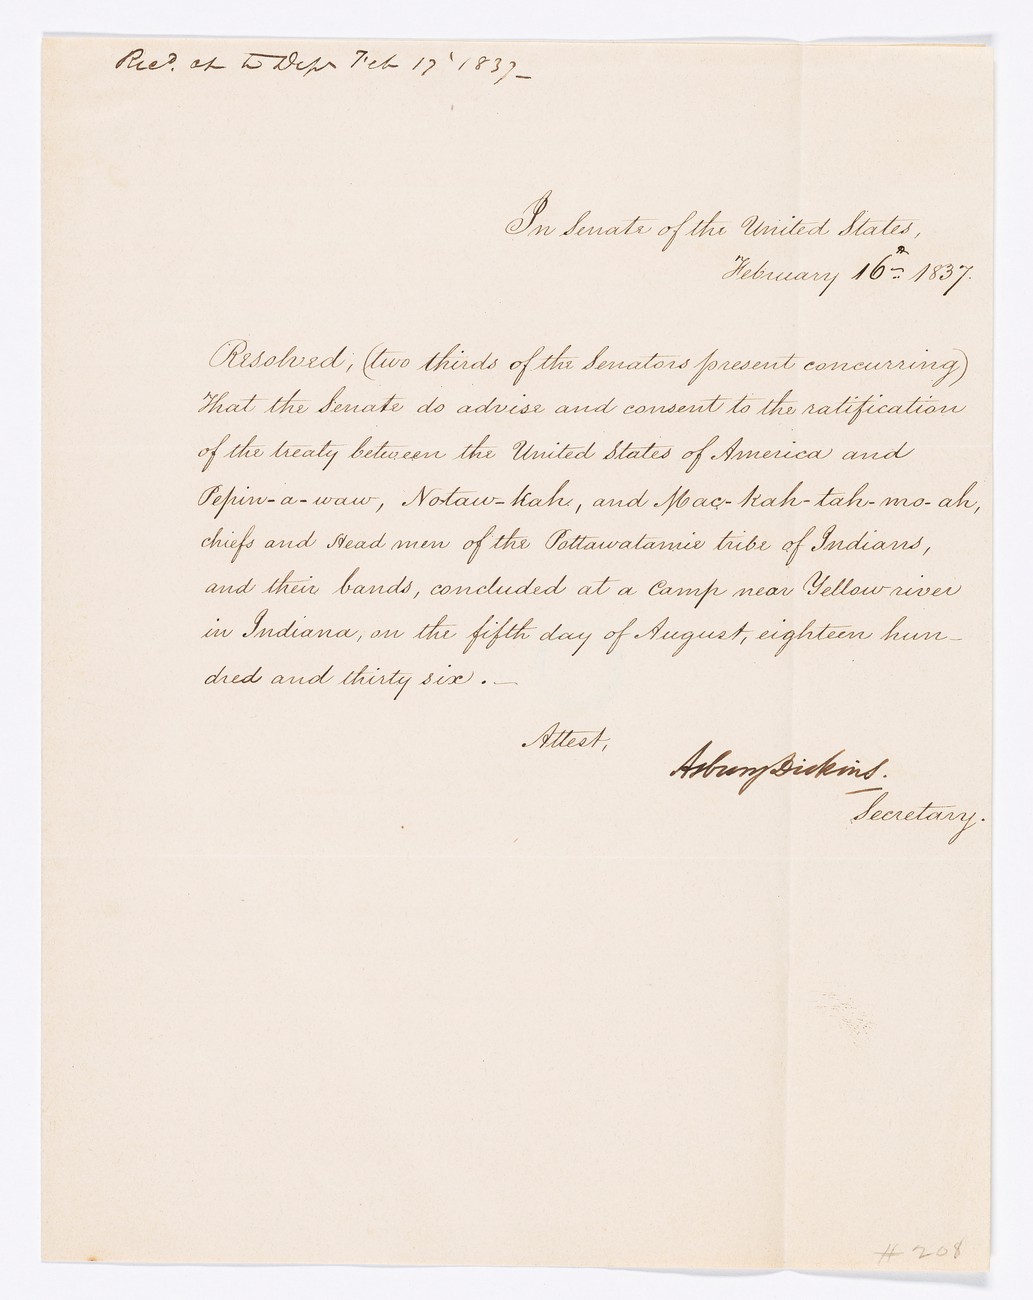 Recd. at the Dept Feb 17' 1837_
In Senate of the United States,
February 16th 1837.
Resolved, (two thirds of the Senators present concurring)
That the Senate do advise and consent to the ratification
of the treaty between the United States of America and
Pepin-a-waw, Notaw-kah, and Mac-kah-tah-mo-ah,
chiefs and Head men of the Pottawatamie tribe of Indians,
and their bands, concluded at a camp near Yellow river
in Indiana, on the fifth day of August, eighteen hun-
dred and thirty six. _
Attest,
Asbury Dickins.
Secretary.
# 208